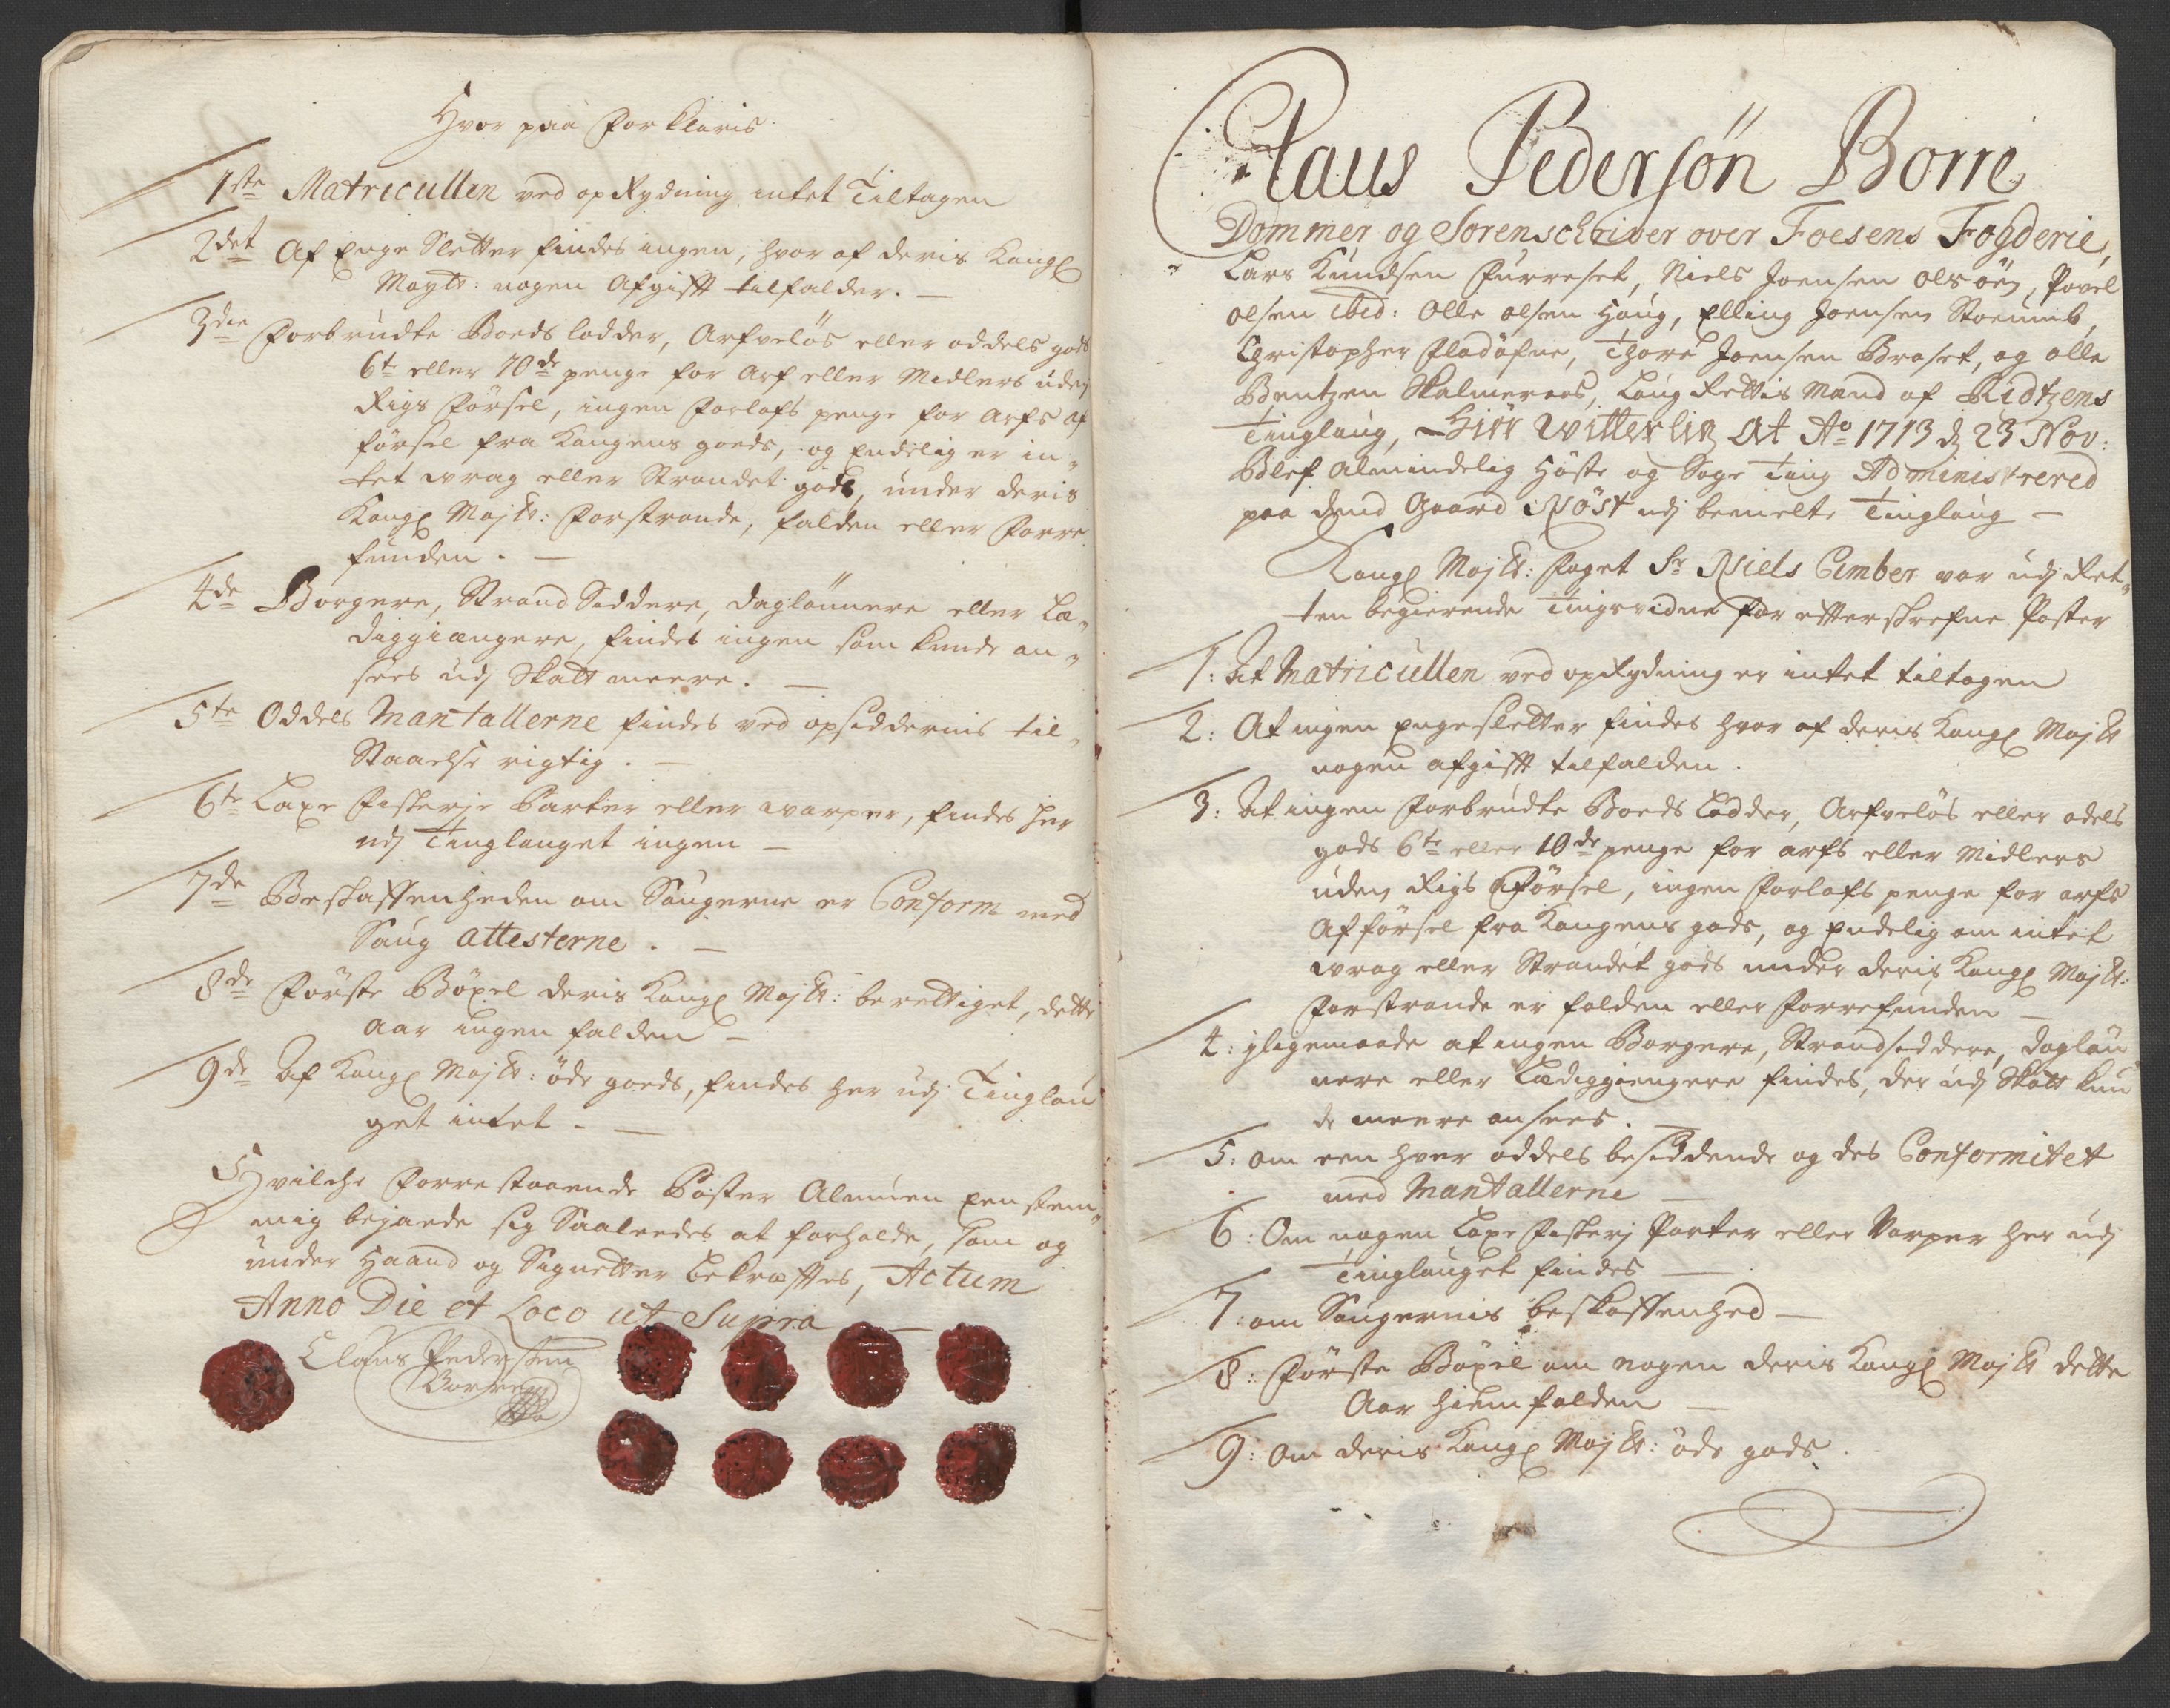 Hvor paa Forklaris
1ste Matricullen ved opRydning intet Tiltagen
2det Af Enge Sletter findes ingen, hvor af deris Kongl
Maytt: nogen Afgifft tilfalder. —
3die Forbrudte Boeds lodder, Arfveløs eller oddels gods
6te eller 10de penge for Arf eller Midlers uden
Rigs Førsel, ingen Forlofs penge for Arfs af
førsel fra Kongens goeds, og Endelig er in„
tet wrag eller Strandet gods, under deris
Kongl Majtt: Forstrande, falden eller Forre
funden. —
4de Borgere, Strand Siddere, daglønnere eller Læ„
diggiængere, findes ingen som kunde an„
sees udj Skatt meere. —
5te Oddels Mantallerne findes ved opsiddernis til„
Staaelse rigtig. —
6te Laxe Fiskerje Parter eller warper, findes her
udj Tinglauget ingen —
7de Beskaffenheden om Saugerne er Conform med
Saug attesterne. —
8de Første Bøxel deris Kongl Majtt: berettiget, dette
Aar ingen falden —
9de Af Kongl Majtt: øde goeds, findes her udj Tinglau
get intet. —
Hvilche Forrestaaende Poster Almuen Eenstem„
mig bejaede sig Saaleedes at forholde, som og
under Haand og Signetter bekræfftes, Actum
Anno Die et Loco ut Supra —
Claus Pedersen
Borre
Claus Pedersøn Borre
Dommer og Sorenschriver over Foesens Fogderie,
Lars Knudsen Furreset, Niels Joensen Olsøen, Povel
olsen ibid: Olle olsen Haug, Elling Joensen Stoeumb,
Christopher Fladøfne, Thore Joensen Braset, og olle
Bentzen Skalmeraas, Laug Rettis Mænd af Ridtzens
Tinglaug, Giør Witterlig At Ao 1713 d 23 Nov:
Blef Almindelig Høste og Sage Ting Administrered
paa dend Gaard Røst udj bemelte Tinglaug —
Kongl Majtt: Foget Sr Niels Cimber var udj Ret„
ten begierende Tingsvidne for efterskrefne Poster
1: At Matricullen ved opRydning er intet tiltagen
2: At ingen Engesletter findes hvor af deris Kongl Majtt
nogen afgifft tilfalden.
3: At ingen Forbrudte Boeds Lodder, Arfveløs eller odels
gods 6te eller 10de penge for arfs eller Midlers
uden Rigs Førsel, ingen Forlofs penge for arfs
Afførsel fra Kongens gods, og Endelig om intet
wrag eller Strandet gods under deris Kongl Majtt:
Forstrande er falden eller Forrefunden —
4: jligemaade at ingen Borgere, Strandsiddere, dagløn
nere eller Lædiggiengere findes, der udj Skatt kun
de meere ansees. —
5: om een hver oddels besiddende og des Conformitet
med Mantallerne —
6: Om nogen Laxe Fiskerj Parter eller Varper her udj
Tinglauget findes —
7: om Saugernis beskaffenhed —
8: Første Bøxel om nogen deris Kongl Majtt dette
Aar hiemfalden —
9: Om deris Kongl Majtt: øde gods.